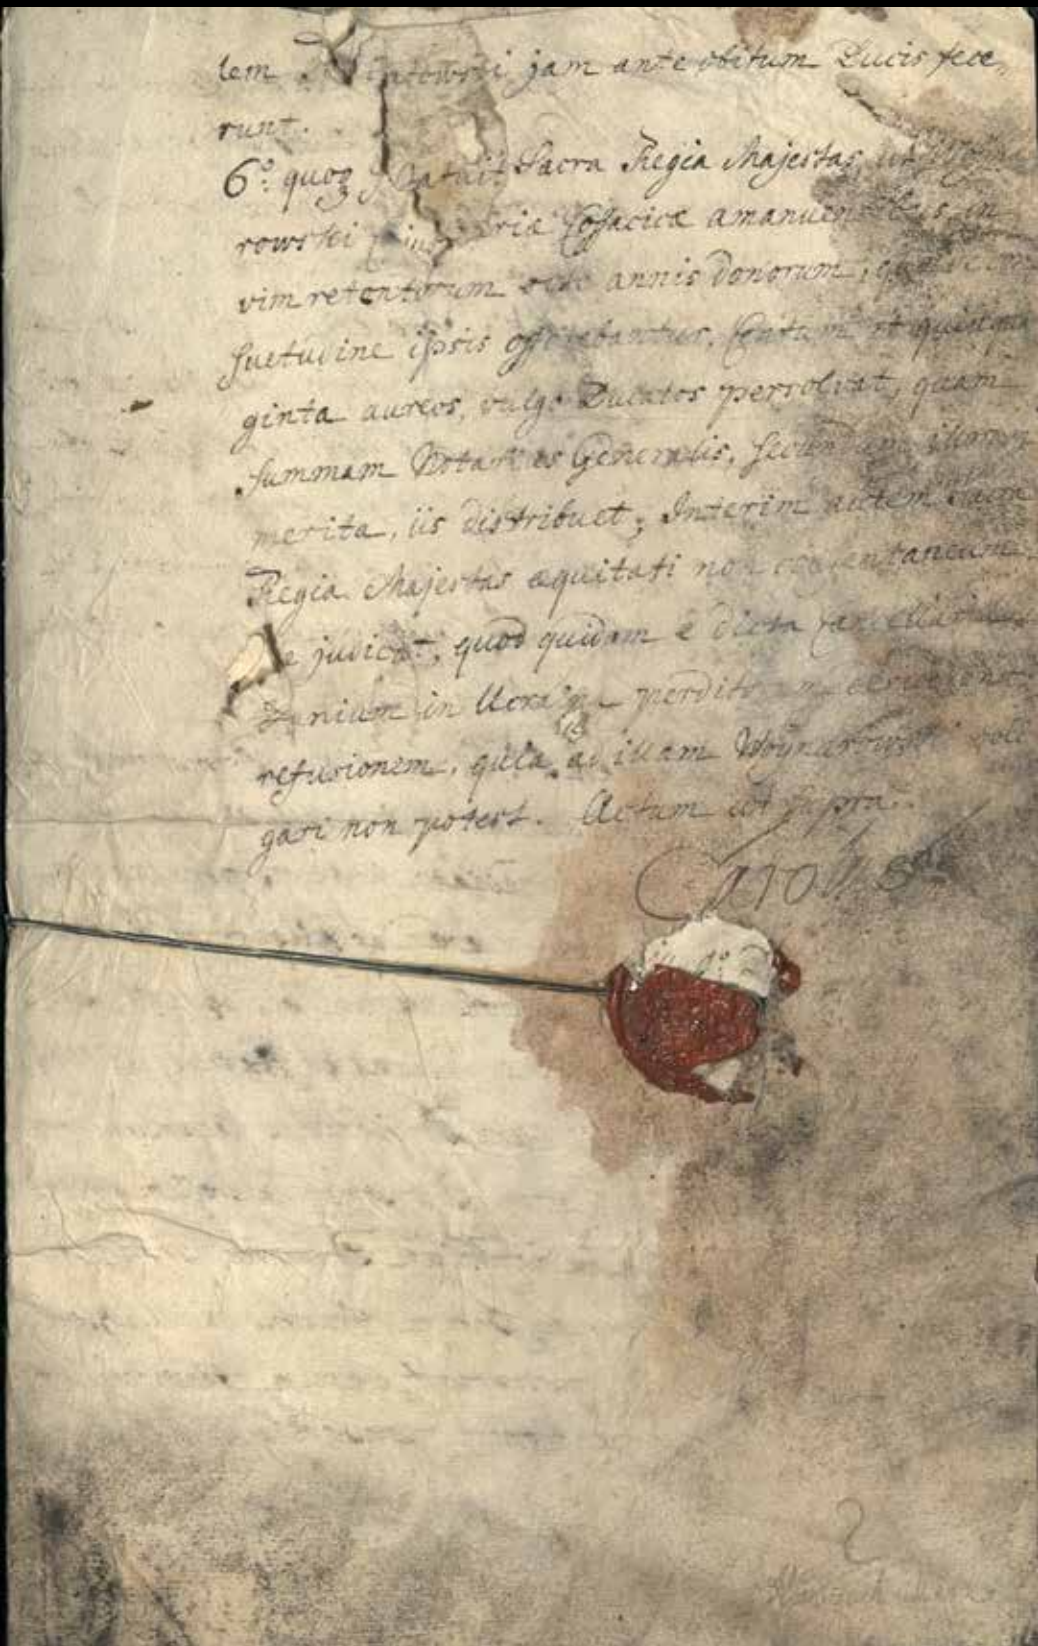 lem jam ante obitum Ducis fece„
runt.
6º: quoq Sacra Regia Majestas, ut
rowski Cosacicæ in
vim retentorum annis donorum,
suetudine ipsis offerebantur, Centum et quinqua
ginta aureos, vulgo Ducatos persolvat, quam
summam Notarius Generalis, secundum illorum
merita, iis distribuet; Interim autem Sacra
Regia Majestas æquitati non consentaneum
judicat, quod quidam e dicta
in Ucraina perditorum
refusionem, quia ad illam Woynarowski obli
gari non potest. Actum ut supra.
Carolus